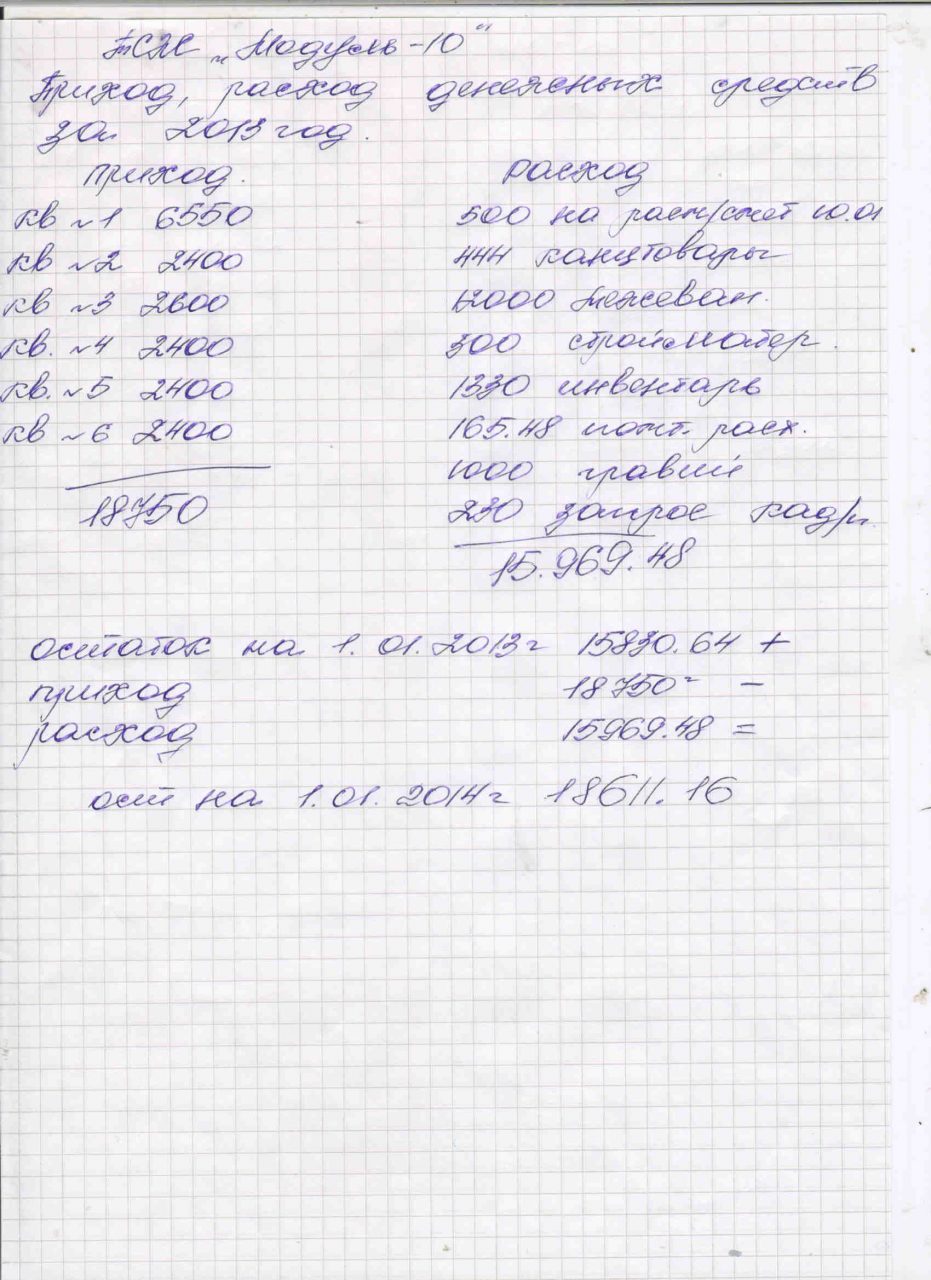 ТСЖ „Модуль-10"
Приход, расход денежных средств
за 2013 год.
приход. расход
кв №1 6550 500 на расч/счет 10.01
кв №2 2400 444 канцтовары
кв №3 2600 12000 межеван.
кв. №4 2400 300 стройматер.
кв. №5 2400 1330 инвентарь
кв №6 2400 165.48 почт. расх.
18750 1000 гравий
230 запрос кад/п.
15.969.48
остаток на 1.01.2013г 15830.64 +
приход 18750= –
расход 15969.48 =
ост на 1.01.2014г 18611.16